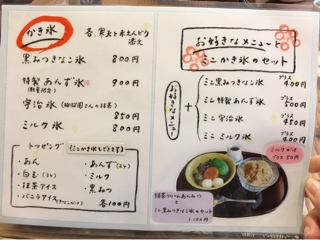 かき氷
各、寒天と赤えんどう
添え
黒みつきなこ氷 800円
特製あんず氷 900円
(数量限定)
宇治氷 850円
ミルク氷 800円
トッピング
・あん
・白玉
・抹茶アイス
・バニラアイス
・あんず
・ミルク
・黒みつ
各100円
お好きなメニューと
ミニかき氷のセット
お好きなメニュー
+
プラス
ミニ黒みつきなこ氷 400円
プラス
ミニ特製あんず氷 500円
プラス
ミニ宇治氷 450円
プラス
ミニミルク氷 400円
ミルクがけ
プラス50円
抹茶クリームあんみつ
と
ミニ黒みつきなこ氷のセット